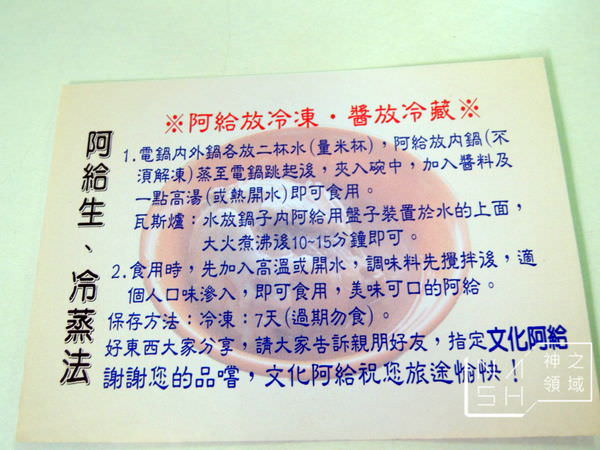 ※阿給放冷凍・醬放冷藏※
阿給生、冷蒸法
1.電鍋內外鍋各放二杯水(量米杯)，阿給放內鍋(不
須解凍)蒸至電鍋跳起後，夾入碗中，加入醬料及
一點高湯(或熱開水)即可食用。
瓦斯爐：水放鍋子內阿給用盤子裝置於水的上面，
大火煮沸後10~15分鐘即可。
2.食用時，先加入高溫或開水，調味料先攪拌後，適
個人口味滲入，即可食用，美味可口的阿給。
保存方法：冷凍：7天(過期勿食)。
好東西大家分享，請大家告訴親朋好友，指定文化阿給
謝謝您的品嚐，文化阿給祝您旅途愉快！
SH
神之
領域